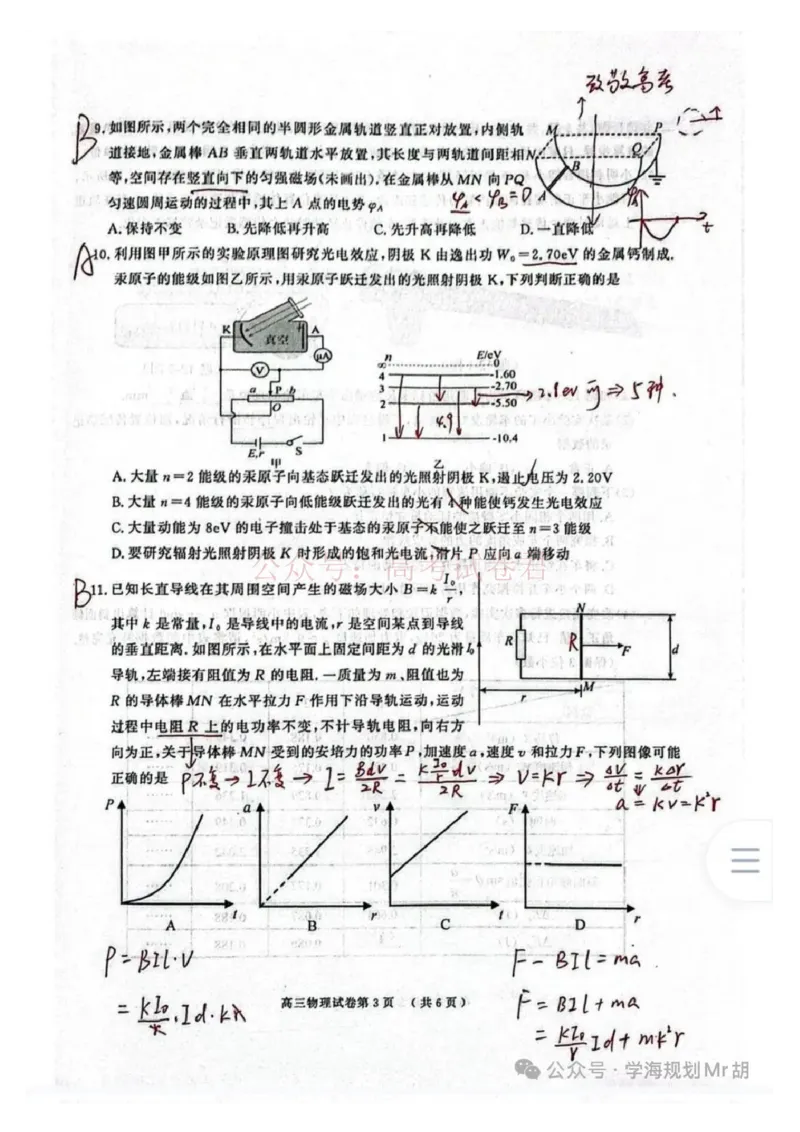 致敬高考
B
9. 如图所示,两个完全相同的半圆形金属轨道竖直正对放置,内侧轨
道接地,金属棒 AB 垂直两轨道水平放置,其长度与两轨道间距相
等,空间存在竖直向下的匀强磁场(未画出),在金属棒从 MN 向 PQ
匀速圆周运动的过程中,其上 A 点的电势 φA
M P
N Q
B
A
φA < φB = 0
φA
t
A. 保持不变 B. 先降低再升高 C. 先升高再降低 D. 一直降低
A
10. 利用图甲所示的实验原理图研究光电效应,阴极 K 由逸出功 W₀=2.70eV 的金属钙制成.
汞原子的能级如图乙所示,用汞原子跃迁发出的光照射阴极 K,下列判断正确的是
K A
真空
μA
V
a P b
O
E,r S
甲
n E/eV
∞ 0
4 -1.60
3 -2.70
2 -5.50
1 -10.4
乙
4.9
A. 大量 n=2 能级的汞原子向基态跃迁发出的光照射阴极 K,遏止电压为 2.20V
B. 大量 n=4 能级的汞原子向低能级跃迁发出的光有 4 种能使钙发生光电效应
C. 大量动能为 8eV 的电子撞击处于基态的汞原子不能使之跃迁至 n=3 能级
D. 要研究辐射光照射阴极 K 时形成的饱和光电流,滑片 P 应向 a 端移动
公众号:高考试卷君
B
11. 已知长直导线在其周围空间产生的磁场大小 B=k I₀/r,
其中 k 是常量,I₀ 是导线中的电流,r 是空间某点到导线
的垂直距离. 如图所示,在水平面上固定间距为 d 的光滑
导轨,左端接有阻值为 R 的电阻. 一质量为 m、阻值也为
R 的导体棒 MN 在水平拉力 F 作用下沿导轨运动,运动
过程中电阻 R 上的电功率不变,不计导轨电阻,向右方
向为正,关于导体棒 MN 受到的安培力的功率 P,加速度 a,速度 v 和拉力 F,下列图像可能
正确的是
N
R R F d
I₀
M
r
P不变 → I不变 → I = Bdv/2R = k I₀/r dv/2R ⇒ v=kr ⇒ Δv/Δt = kΔr/Δt
a = kv = k²r
P a v F
t r t r
A B C D
P = BIl·v
= kI₀/r · Id·kr
F - BIl = ma
F = BIl + ma
= kI₀/r Id + mk²r
高三物理试卷第 3 页 (共 6 页)
公众号 · 学海规划Mr胡